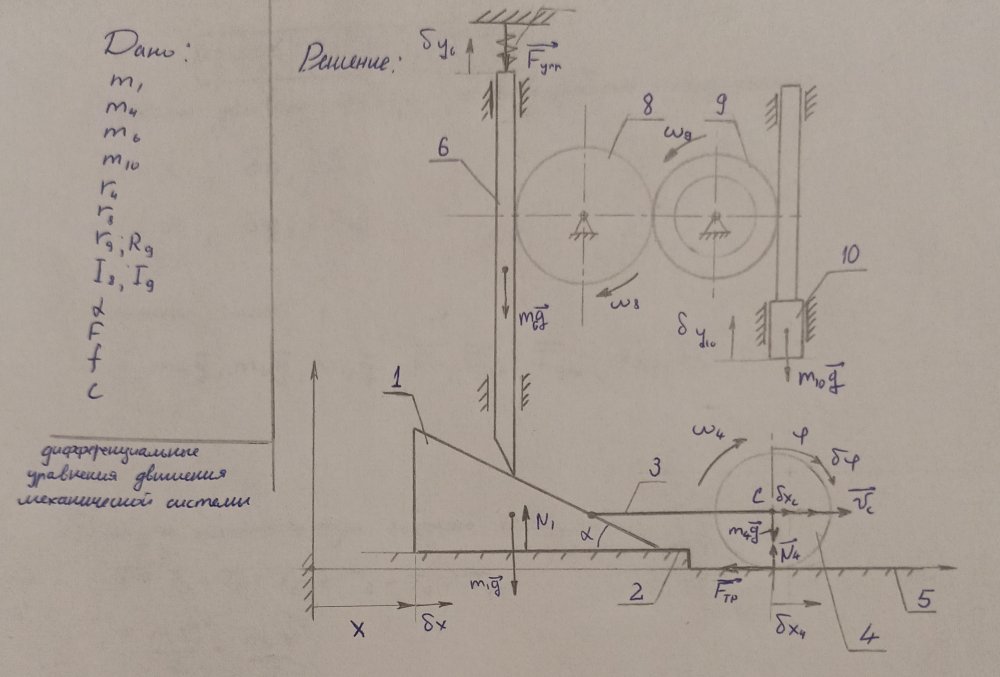 Дано:
m₁
m₄
m₆
m₁₀
r₄
r₈
r₉; R₉
I₈; I₉
α
F
f
c
дифференциальные
уравнения движения
механической системы
Решение:
δy₆
F⃗упр
8
9
ω₉
6
10
m₆g⃗
ω₈
δy₁₀
m₁₀g⃗
1
ω₄
φ
δφ
3
C
δx_c
V⃗_c
N₁
α
m₄g⃗
N⃗₄
m₁g⃗
2
F⃗тр
5
x
δx
δx₄
4